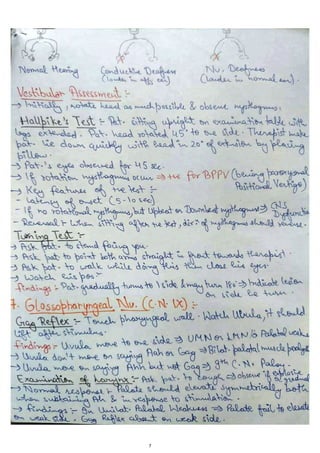 Normal Hearing Conductive Deafness Nu. Deafness
(louder in aff. ear) (louder in normal ear).
Vestibular Assessment :-
→ Initially, rotate head as much possible & observe nystagmus,
Hallpike's Test :- Pat. sitting upright on examination table with
legs extended. Pat. head rotated 45° to one side. Therapist make
pat. lie down quickly with head in 20° of extension by placing
pillow.
→ Pat.'s eyes observed for 45 sec.
→ If rotation nystagmus occur ⇒ +ve for BPPV (benign paroxysmal
Positional Vertigo)
→ Key features of +ve test :-
- Latency of onset (5-10 sec)
- If no rotational nystagmus, but Upbeat or Downbeat nystagmus ⇒ CNS
Dysfunction
- Reversal: when sitting after +ve test, dirⁿ of nystagmus should reverse.
Turning Test :-
→ Ask pat. to stand facing you.
→ Ask pat to point both arms straight in front towards therapist.
→ Ask pat. to walk while doing this then close his eyes.
→ Watch his pos.
findings :- Pat. gradually turns to 1 side & may turn 180° ⇒ Indicate lesion
on side he turn.
7. Glossopharyngeal Nu. (C.N. IX) :-
Gag Reflex :- Touch pharyngeal wall. Watch Uvula, it should
lift after stimulus.
findings - Uvula move to one side ⇒ UMN or LMN & Palatal weakness
→ Uvula don't move on saying Aah or Gag ⇒ Bilat. palatal muscle paralysis
→ Uvula move on saying Ahh but not Gag ⇒ 9th C.N. Palsy.
Examination of Larynx :- Ask pat. to Cough ⇒ observe if explosive
or gradual
→ Normal Response: Palate should elevate symmetrically both
when sustaining Ah & in response to stimulation.
→ findings :- In Unilat Palatal Weakness ⇒ Palate fail to elevate
on weak side. Gag Reflex absent on weak side.
7